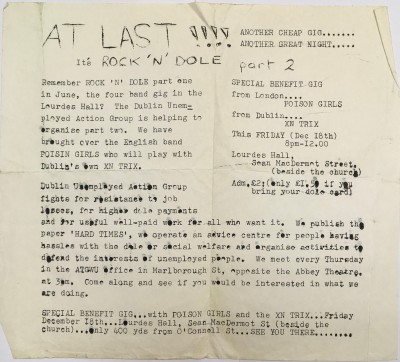 AT LAST !!!!
It's ROCK 'N' DOLE part 2
ANOTHER CHEAP GIG.......
ANOTHER GREAT NIGHT.....
Remember ROCK 'N' DOLE part one
in June, the four band gig in the
Lourdes Hall? The Dublin Unem-
ployed Action Group is helping to
organise part two. We have
brought over the English band
POISIN GIRLS who will play with
Dublin's own XN TRIX.
SPECIAL BENEFIT GIG
from London....
POISON GIRLS
from Dublin....
XN TRIX
This FRIDAY (Dec 18th)
8pm-12.00
Lourdes Hall,
Sean MacDermot Street.
(beside the church)
Adm. £2: (only £1.50 if you
bring your dole card)
Dublin Unemployed Action Group
fights for resistance to job
losses, for higher dole payments
and for useful well-paid work for all who want it. We publish the
paper 'HARD TIMES', we operate an advice centre for people having
hassles with the dole or social welfare and organise activities to
defend the interests of unemployed people. We meet every Thursday
in the ATGWU Office in Marlborough St, opposite the Abbey Theatre,
at 3pm. Come along and see if you would be interested in what we
are doing.
SPECIAL BENEFIT GIG...with POISON GIRLS and the XN TRIX...Friday
December 18th...Lourdes Hall, Sean MacDermot St (beside the
church)...Only 400 yds from O'Connell St...SEE YOU THERE........